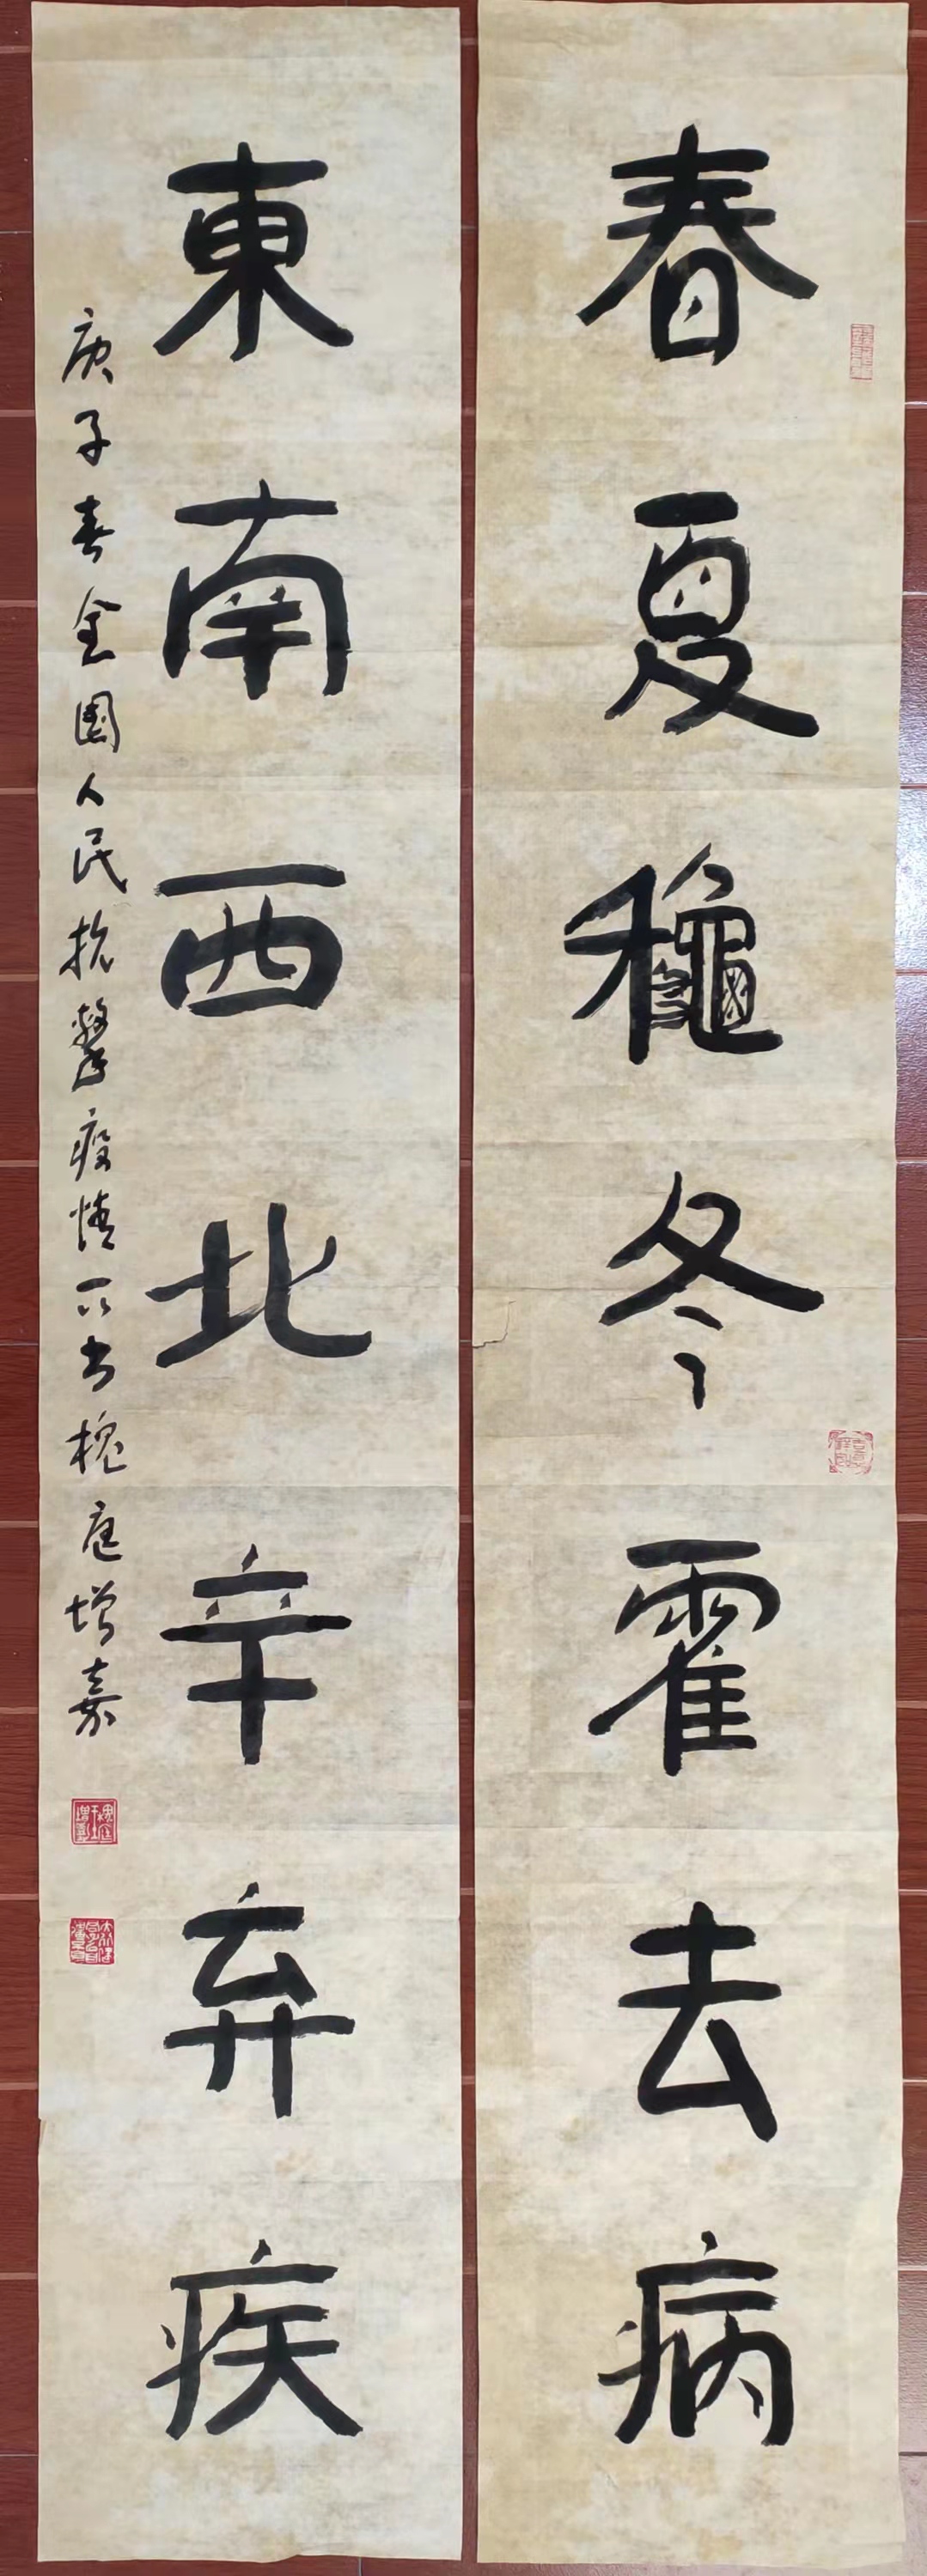 春夏龝冬霍去病
東南西北辛弃疾
庚子春全国人民抗擊疫情所书槐庭增嘉